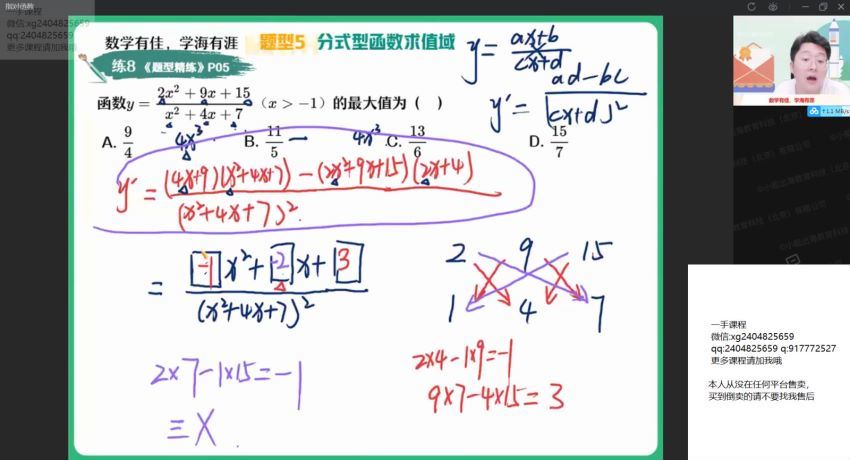 指对函数
一手课程
微信:xg2404825659
qq:2404825659
更多课程请加我哦
数学有佳，学海有涯 题型5 分式型函数求值域
练8《题型精练》P05
函数y = \frac{2x²+9x+15}{x²+4x+7}（x > -1）的最大值为（ ）
A. 9/4 B. 11/5 C. 13/6 D. 15/7
y = \frac{ax+b}{cx+d}
y' = \frac{ad-bc}{(cx+d)²}
4x³ — 4x³
y' = \frac{(4x+9)(x²+4x+7)-(2x²+9x+15)(2x+4)}{(x²+4x+7)²}
= \frac{-1x²+-2x+3}{(x²+4x+7)²}
2 9 15
1 4 7
2×7-1×15=-1
三 X
2×4-1×9=-1
9×7-4×15=3
数学有佳，学海有涯
一手课程
微信:xg2404825659
qq:2404825659 q:917772527
更多课程请加我哦
本人从没在任何平台售卖，
买到倒卖的请不要找我售后